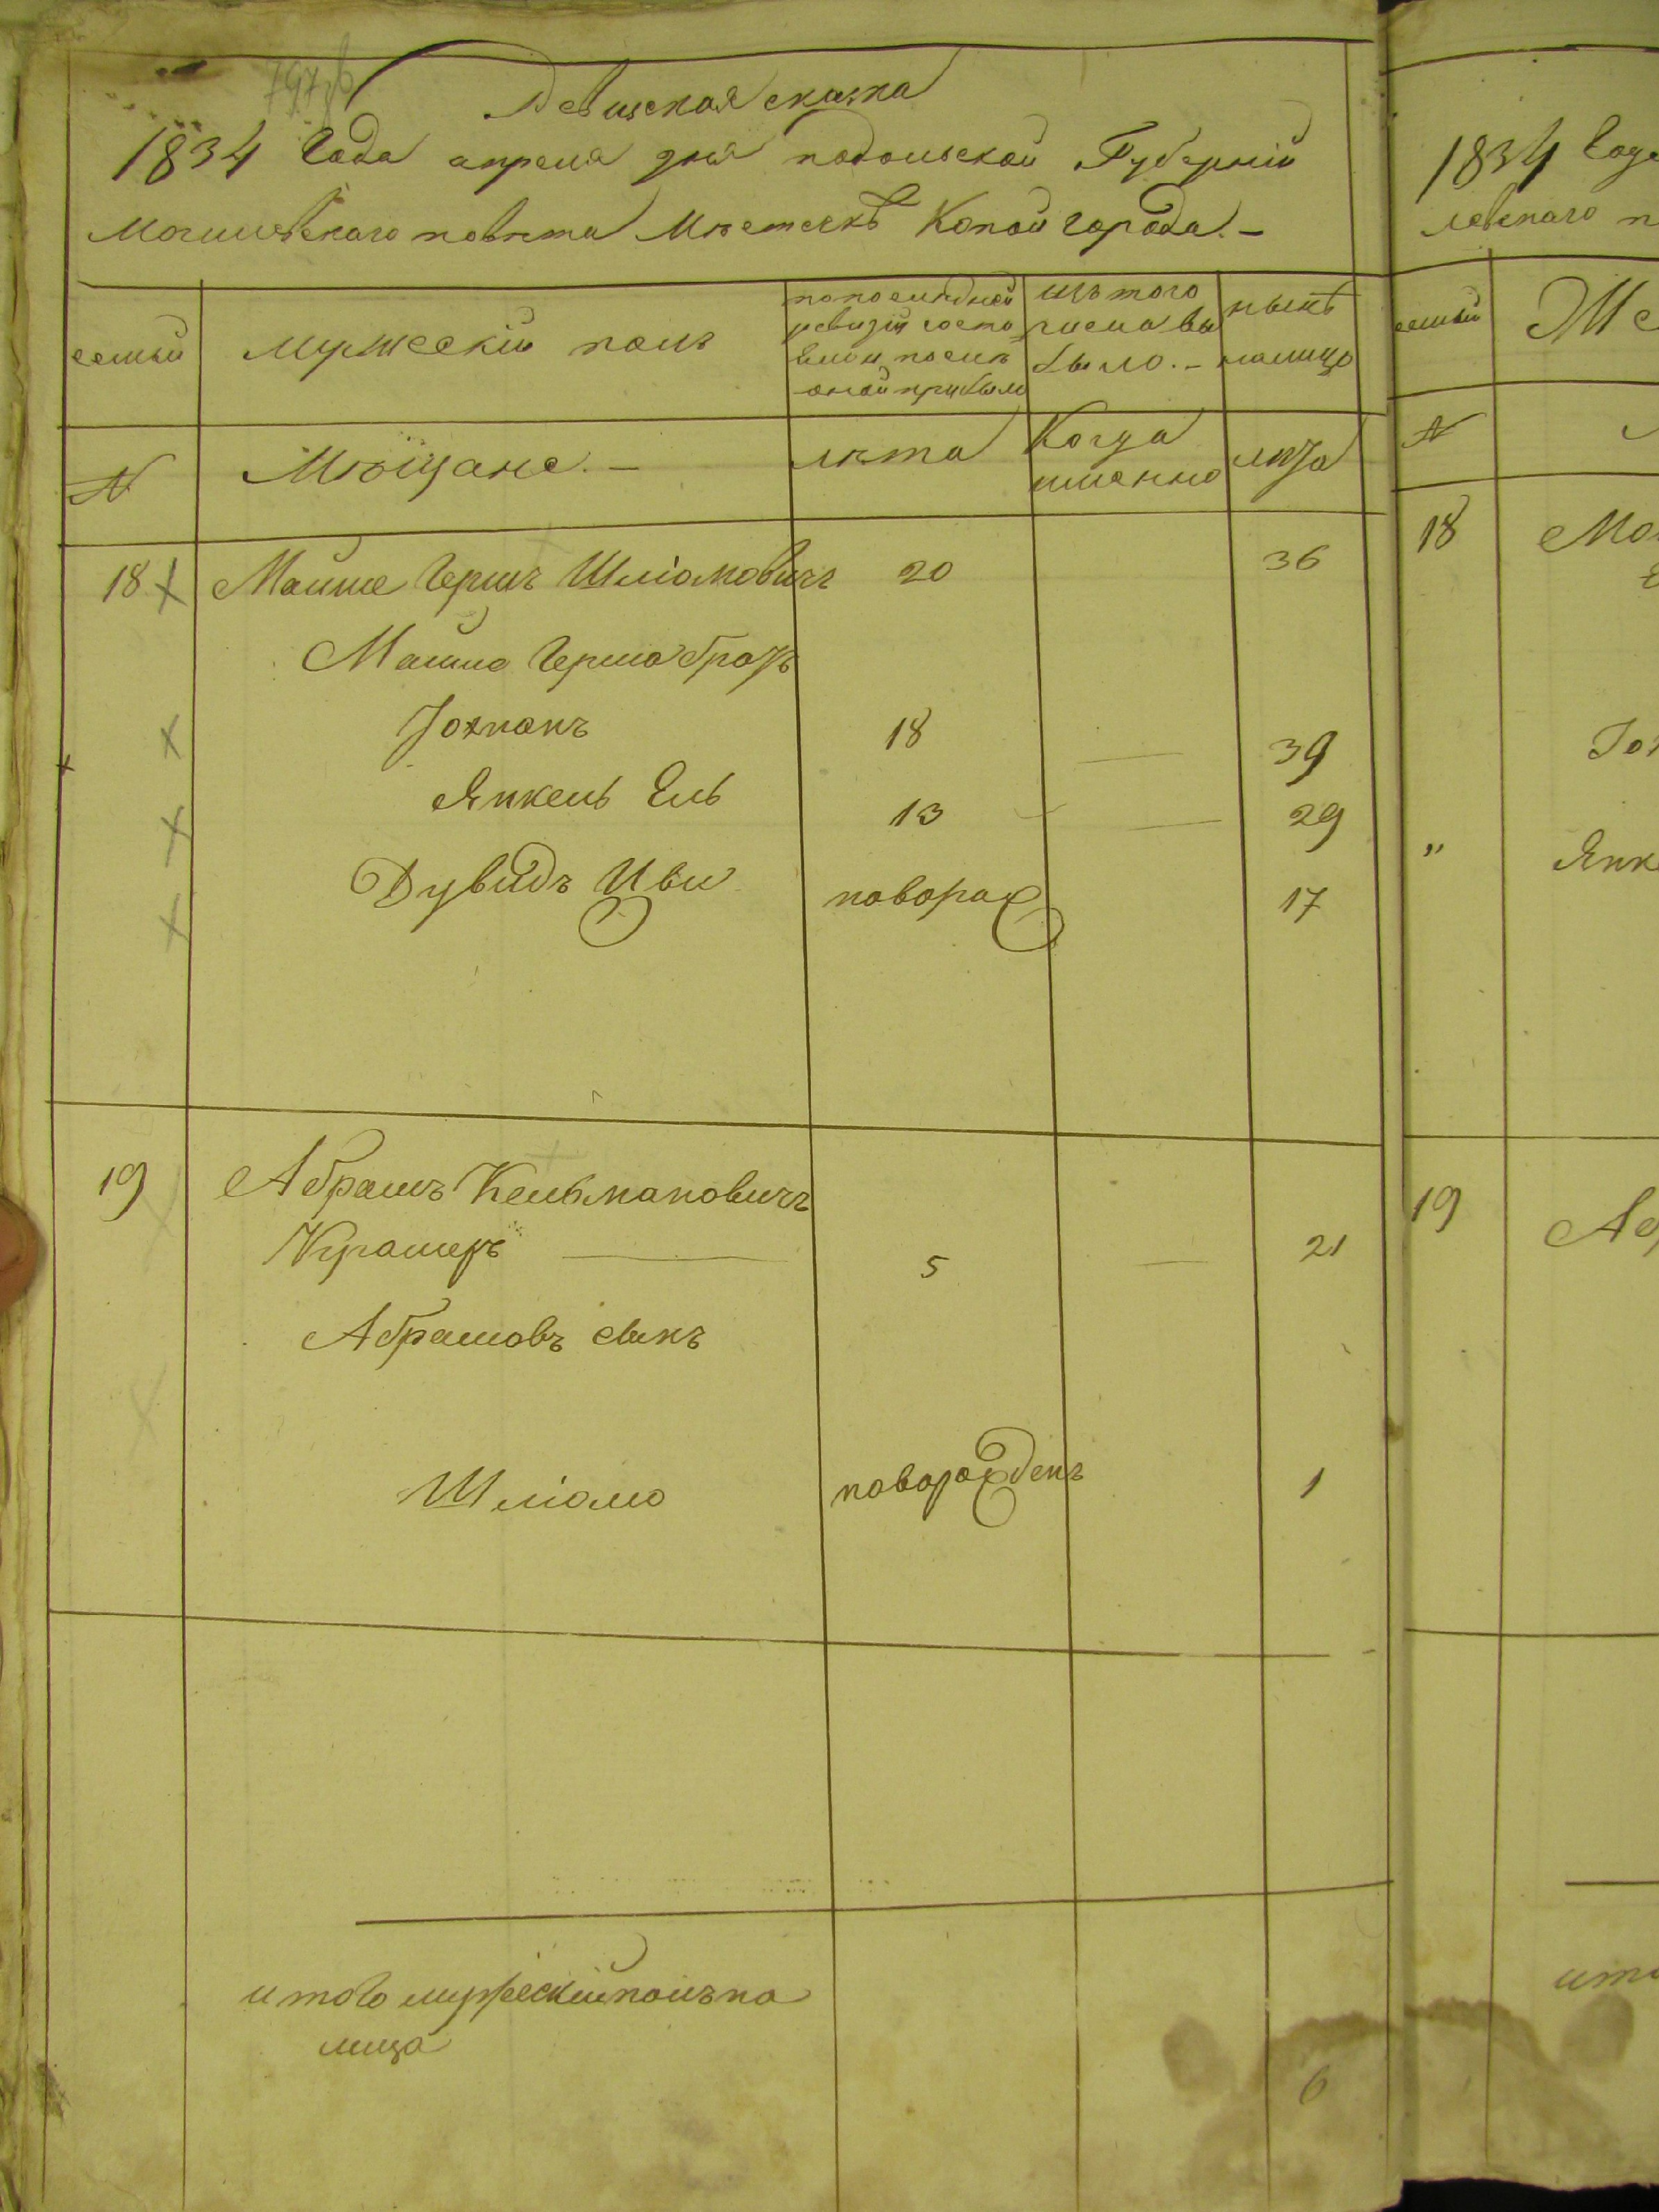 Ревизская сказка
1834 Года апреля дня подольской Губерній
Могилевскаго повѣта Мѣстечкѣ Копай города.-
семьи
мужескій полъ
по последней
ревизіи состо
яло и послѣ
оной прибыло
изъ того
числа вы
было.-
нынѣ
налицо
N
Мѣщане.-
лѣта
Когда
именно
лѣта
18
Мошко Гершъ Шліомовичъ
20
36
Мошко Герша братъ
Іохнанъ
18
39
Янкель Ель
13
29
Дувидъ Цви
новорож
17
19
Абрамъ Кельмановичъ
5
21
Абрамовъ сынъ
Шліомо
новорожденъ
1
итого мужескій полъ на
лицо
6
1834 Года
левскаго п
семьи
Же
N
18
Мо
Іох
"
Янке
19
Аб
ито